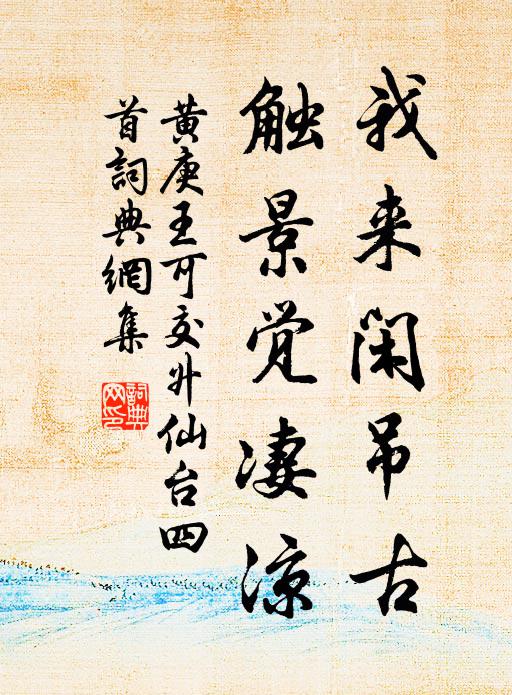 我来闲吊古
触景觉凄凉
黄庚王可交升仙台四
首詞典網集
詞典網印